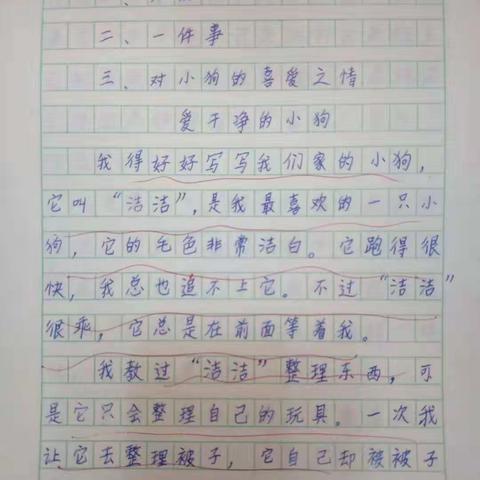 二、一件事
三、对小狗的喜爱之情
爱干净的小狗
我得好好写写我们家的小狗,
它叫“洁洁”,是我最喜欢的一只小
狗,它的毛色非常洁白。它跑得很
快,我总也追不上它。不过“洁洁”
很乖,它总是在前面等着我。
我教过“洁洁”整理东西,可
是它只会整理自己的玩具。一次我
让它去整理被子,它自己却被被子